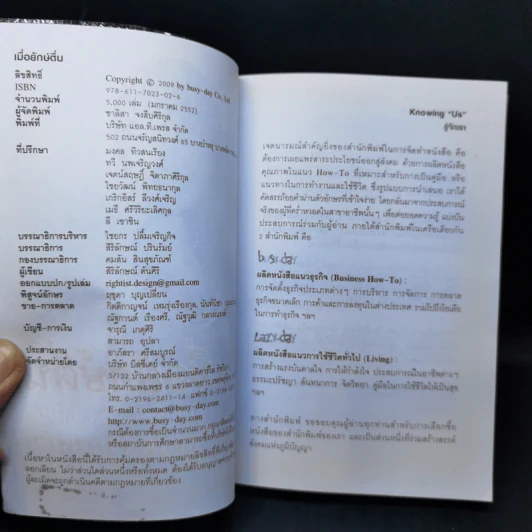 เมื่อยักษ์ตื่น
ลิขสิทธิ์ Copyright © 2009 by busy-day Co., Ltd.
ISBN 978-611-7023-02-6
จำนวนพิมพ์ 5,000 เล่ม (มกราคม 2552)
ผู้จัดพิมพ์ ชาลิสา จงสืบศิริกุล
พิมพ์ที่ บริษัท แอล.ที.เพรส จำกัด
502 ถนนจรัญสนิทวงศ์ 65
ที่ปรึกษา มงคล ทิวสนเรียง
ทวี นพเจริญวงศ์
เจตน์สฤษฎิ์ จิดาภาศิริกุล
ไชยวัฒน์ พิทยอนากุล
เกริกอิสร์ ลีวงศ์เจริญ
เมธี ศรีวิริยะเลิศกุล
ลี เชาชิน
บรรณาธิการบริหาร ไชยกร ปลื้มเจริญกิจ
บรรณาธิการ สิริลักษณ์ ปรินรัมย์
กองบรรณาธิการ คมสัน สินสุขภัณฑ์
ผู้เขียน สิริลักษณ์ ตันศิริ
ออกแบบปก/รูปเล่ม rightist.design@gmail.com
พิสูจน์อักษร ฤชุตา บุญเปลี่ยน
ขาย-การตลาด กิตติกาญจน์ เหมรุ่งเรืองกุล,
ณัฐกานต์ เรืองศรี,
บัญชี-การเงิน จารุณี เกตุศิริ
สามารถ อุปลา
ประสานงาน อาภัสรา ศรีสมบูรณ์
จัดจำหน่ายโดย บริษัท บิสซี่เดย์ จำกัด
5/122 บ้านกลางเมืองแมนฮัตตาร์ไล
ถนนกำแพงเพชร 6
โทร. 0-2196-2411-14 แฟกซ์
E-mail : contact@busy-day.com
http://www.busy-day.com
กรณีต้องการซื้อเป็นจำนวนมาก
หรือสถาบันการศึกษาสามารถ
เนื้อหาในหนังสือนี้ได้รับการคุ้มครองตามกฎหมายลิขสิทธิ์
ลอกเลียน ไม่ว่าส่วนใดส่วนหนึ่งหรือทั้งหมด
ผู้ละเมิดจะถูกดำเนินคดีตามกฎหมายที่เกี่ยวข้อง
Knowing "Us"
รู้จักเรา
เจตนารมณ์สำคัญยิ่งของสำนักพิมพ์ในการจัดทำหนังสือ คือ
ต้องการเผยแพร่สาระประโยชน์ออกสู่สังคม ด้วยการผลิตหนังสือ
คุณภาพในแนว How-To ที่เหมาะสำหรับการเป็นคู่มือ หรือ
แนวทางในการทำงานและใช้ชีวิต ซึ่งรูปแบบการนำเสนอ เราได้
คัดสรรถ้อยคำผ่านตัวอักษรที่เข้าใจง่าย โดยกลั่นมาจากประสบการณ์
จริงของผู้ที่คร่ำหวอดในสาขาอาชีพนั้นๆ เพื่อต่อยอดความรู้ แบ่งปัน
ประสบการณ์ร่วมกับผู้อ่าน ภายใต้สำนักพิมพ์ในเครือเดียวกัน
2 สำนักพิมพ์ คือ
busy-day
ผลิตหนังสือแนวธุรกิจ (Business How-To) :
การจัดตั้งธุรกิจประเภทต่างๆ การบริหาร การจัดการ การตลาด
ธุรกิจขนาดเล็ก การค้าและการลงทุนในต่างประเทศ รวมไปถึงไอเดีย
ในการทำธุรกิจ ฯลฯ
Lazy-day
ผลิตหนังสือแนวการใช้ชีวิตทั่วไป (Living) :
การสร้างแรงบันดาลใจ การให้กำลังใจ ประสบการณ์ในอาชีพต่างๆ
ธรรมะปรัชญา สันทนาการ จิตวิทยา คู่มือในการใช้ชีวิตให้เป็นสุข
ฯลฯ
ทางสำนักพิมพ์ ขอขอบคุณผู้อ่านทุกท่านสำหรับการเลือกซื้อ
หนังสือของสำนักพิมพ์ของเรา และเป็นส่วนหนึ่งที่ร่วมสร้างสรรค์
สังคมแห่งภูมิปัญญา